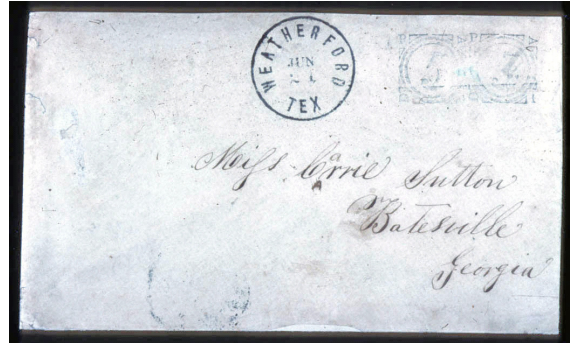 WEATHERFORD
JUN
TEX
Miss Carrie Sutton
Batesville
Georgia